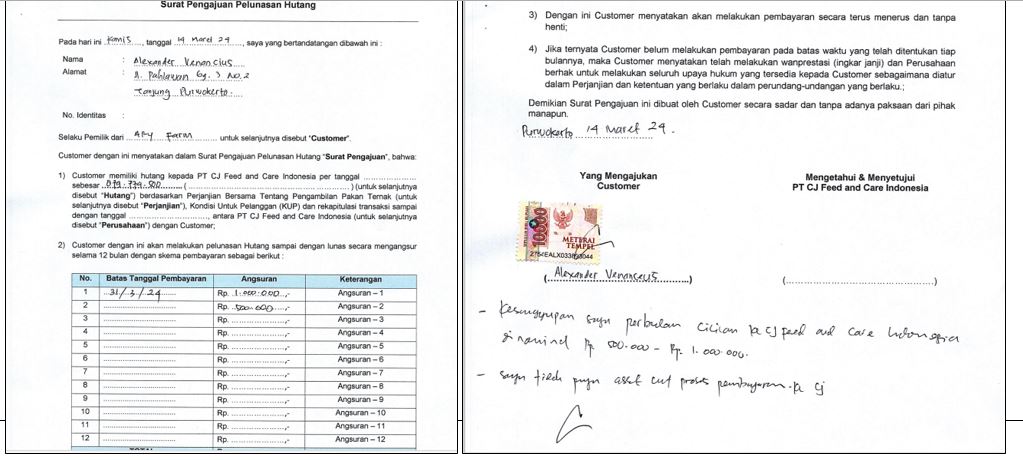 Surat Pengajuan Pelunasan Hutang
Pada hari ini Kamis, tanggal 14 Maret 24, saya yang bertandatangan dibawah ini :
Nama : Alexander Venancius
Alamat : Jl. Pahlawan Gg. 3 No. 2
Tanjung Purwokerto.
No. Identitas :
Selaku Pemilik dari APY Farm untuk selanjutnya disebut "Customer".
Customer dengan ini menyatakan dalam Surat Pengajuan Pelunasan Hutang "Surat Pengajuan", bahwa:
1) Customer memiliki hutang kepada PT CJ Feed and Care Indonesia per tanggal ....................
sebesar .................... ( .................... ) (untuk selanjutnya
disebut "Hutang") berdasarkan Perjanjian Bersama Tentang Pengambilan Pakan Ternak (untuk
selanjutnya disebut "Perjanjian"), Kondisi Untuk Pelanggan (KUP) dan rekapitulasi transaksi sampai
dengan tanggal ...................., antara PT CJ Feed and Care Indonesia (untuk selanjutnya
disebut "Perusahaan") dengan Customer;
2) Customer dengan ini akan melakukan pelunasan Hutang sampai dengan lunas secara mengangsur
selama 12 bulan dengan skema pembayaran sebagai berikut :
No. Batas Tanggal Pembayaran Angsuran Keterangan
1 31/3/24 Rp. 1.000.000,- Angsuran – 1
2 .................... Rp. 500.000,- Angsuran – 2
3 .................... Rp. ....................,- Angsuran – 3
4 .................... Rp. ....................,- Angsuran – 4
5 .................... Rp. ....................,- Angsuran – 5
6 .................... Rp. ....................,- Angsuran – 6
7 .................... Rp. ....................,- Angsuran – 7
8 .................... Rp. ....................,- Angsuran – 8
9 .................... Rp. ....................,- Angsuran – 9
10 .................... Rp. ....................,- Angsuran – 10
11 .................... Rp. ....................,- Angsuran – 11
12 .................... Rp. ....................,- Angsuran – 12
3) Dengan ini Customer menyatakan akan melakukan pembayaran secara terus menerus dan tanpa
henti;
4) Jika ternyata Customer belum melakukan pembayaran pada batas waktu yang telah ditentukan tiap
bulannya, maka Customer menyatakan telah melakukan wanprestasi (ingkar janji) dan Perusahaan
berhak untuk melakukan seluruh upaya hukum yang tersedia kepada Customer sebagaimana diatur
dalam Perjanjian dan ketentuan yang berlaku dalam perundang-undangan yang berlaku.;
Demikian Surat Pengajuan ini dibuat oleh Customer secara sadar dan tanpa adanya paksaan dari pihak
manapun.
Purwokerto 14 Maret 24.
Yang Mengajukan
Customer
Mengetahui & Menyetujui
PT CJ Feed and Care Indonesia
10000
METERAI
TEMPEL
(Alexander Venanceus)
(....................)
- Kesanggupan saya perbulan cicilan ke CJ feed and Care Indonesia
nominal Rp 500.000 - Rp. 1.000.000.
- saya tidak punya asset utk proses pembayaran ke CJ